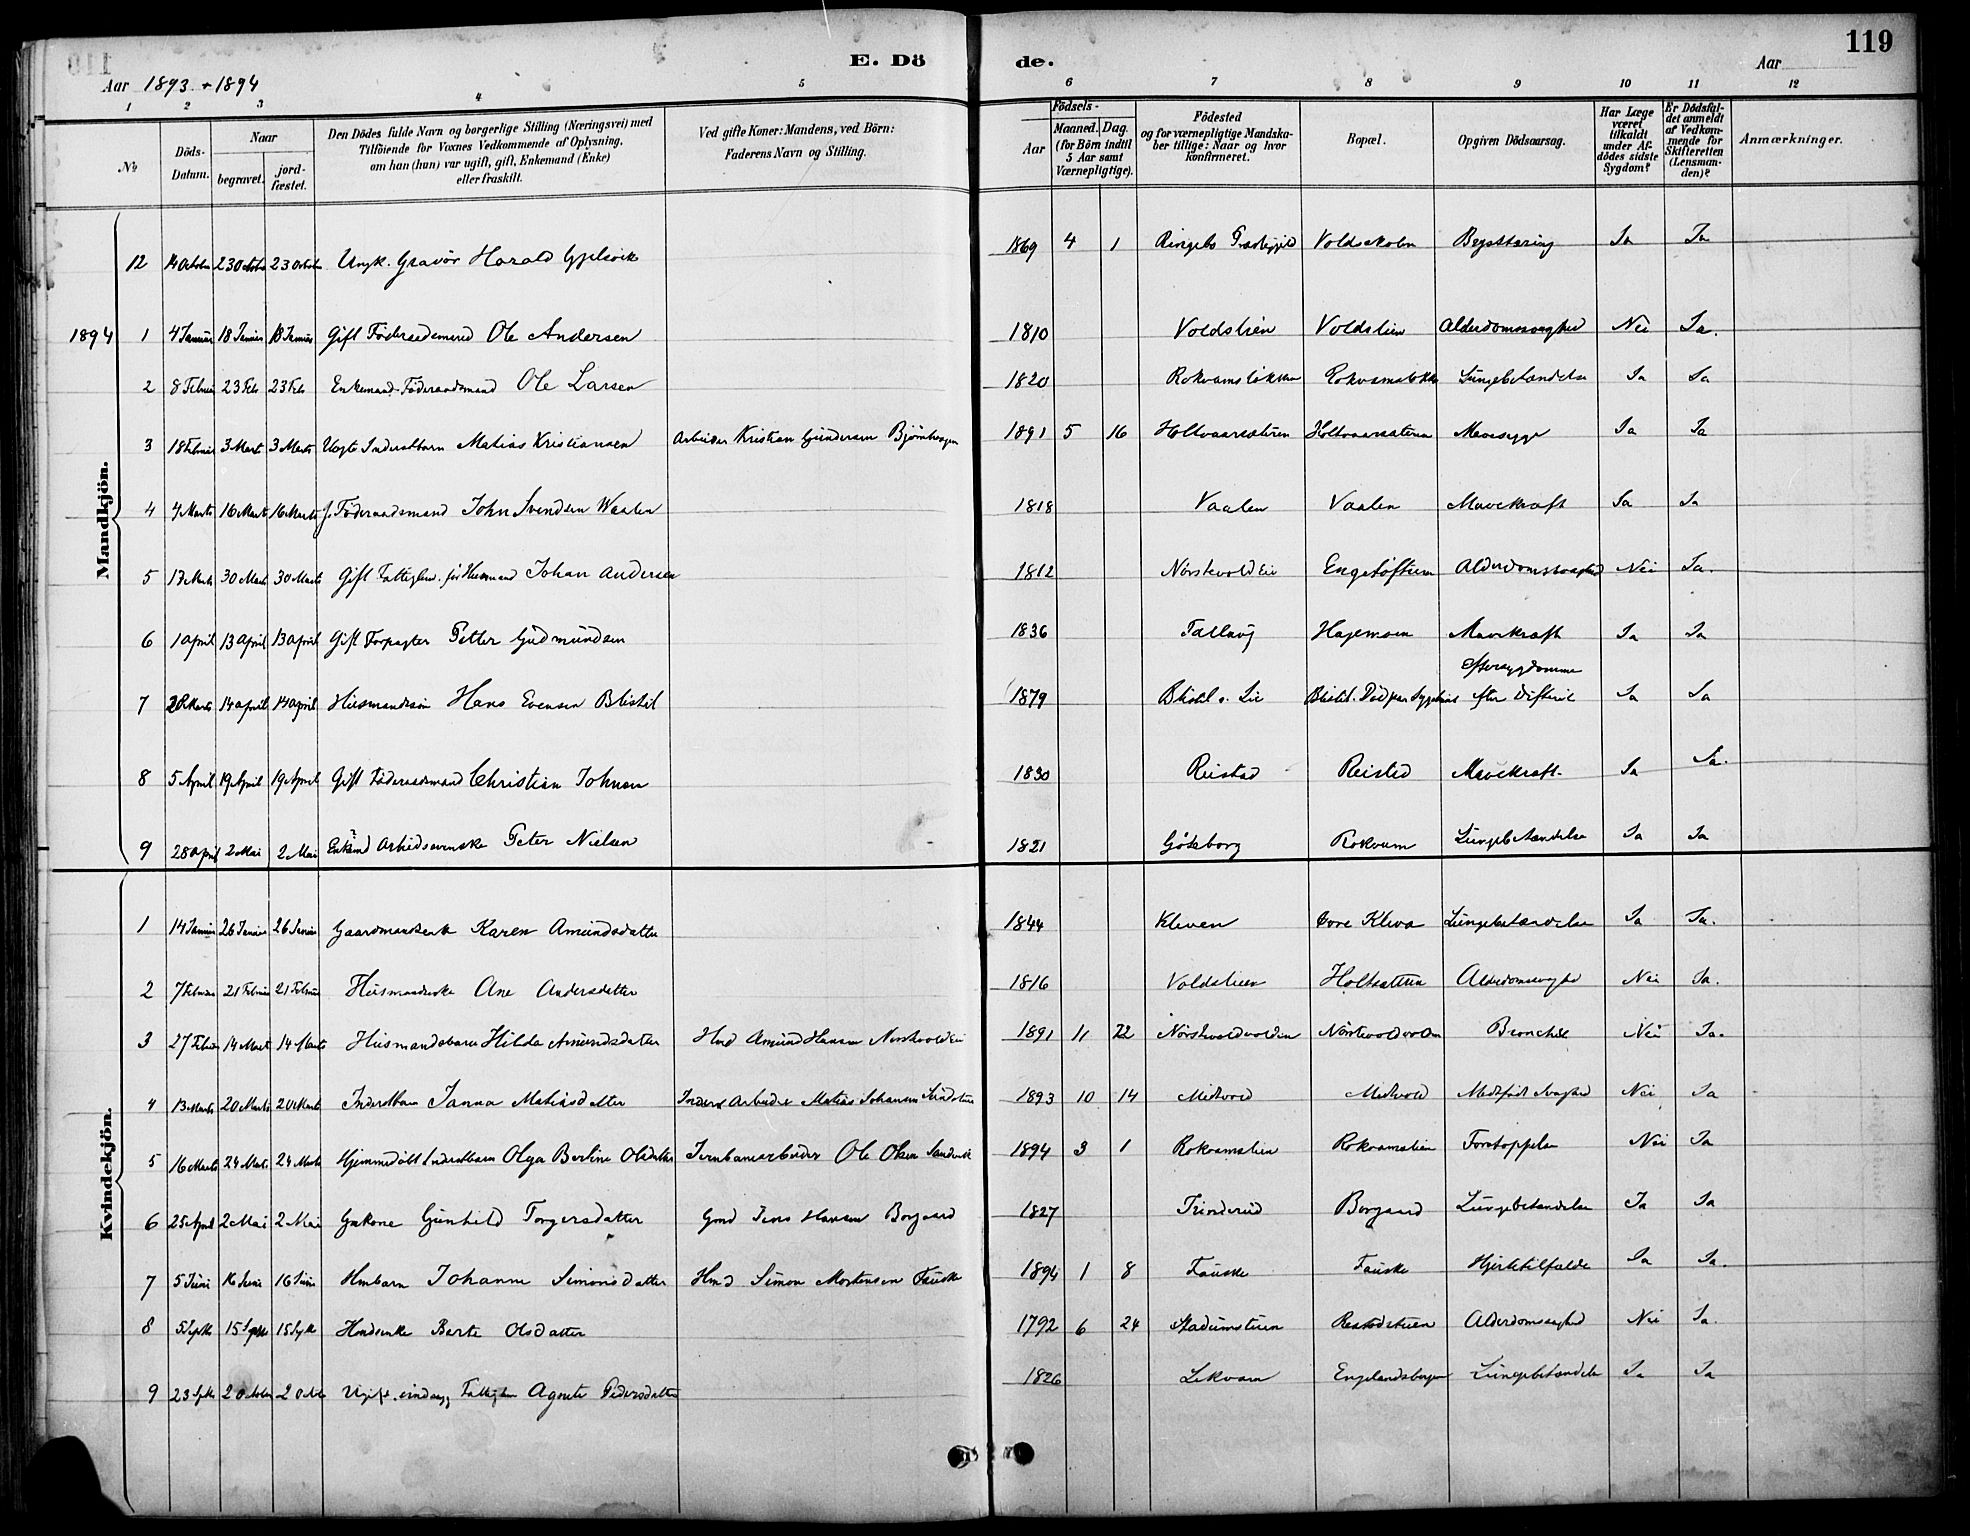 E. Döde.
119
Aar 1893 + 1894
Aar
1 2 3 4 5 6 7 8 9 10 11 12
№
Döds-Datum.
Naar
begravet.
jord-fæstet.
Den Dödes fulde Navn og borgerlige Stilling (Næringsvei) med
Tilföiende for Voxnes Vedkommende af Oplysning,
om han (hun) var ugift, gift, Enkemand (Enke)
eller fraskilt.
Ved gifte Koner: Mandens, ved Börn:
Faderens Navn og Stilling.
Födsels-
Aar
Maaned. Dag.
(for Börn indtil
5 Aar samt
Værnepligtige).
Födested
og for værnepligtige Mandska-
ber tillige: Naar og hvor
konfirmeret.
Bopæl.
Opgiven Dödsaarsag.
Har Læge
været
tilkaldt
under Af-
dödes sidste
Sygdom?
Er Dödsfal-
det anmeldt
af Vedkom-
mende for
Skifteretten
(Lensman-
den)?
Anmærkninger.
Mandkjön.
12 14 October 23 October 23 October Ungk. Gravör Harald Gjelsvik 1869 4 1 Ringebo Voldsskolen Ja Ja
1894 1 4 Januar 18 Januar 18 Januar Gift Föderaadsmand Ole Andersen 1810 Voldslien Voldslien Alderdomssvaghed Nei Ja.
2 8 Februar 23 Feb 23 Feb Enkemand Föderaadsmand Ole Larsen 1820 Rokvamslökken Rokvamslökken Lungebetændelse Ja Ja
3 18 Februar 3 Marts 3 Marts Inderstbarn Matias Kristiansen Arbeider Kristian Gundersen Björnhaugen 1891 5 16 Mavesyge Ja Ja
4 4 Marts 16 Marts 16 Marts Föderaadsmand John Svendsen Waalen 1818 Vaalen Vaalen Mavekræft Ja Ja
5 17 Marts 30 Marts 30 Marts Gift Fattiglem. för Husmand Johan Andersen 1812 Alderdomssvaghed Nei Ja.
6 1 April 13 April 13 April Gift Forpagter Petter Gudmundsen 1836 Hagemoen Mavekræft Ja Ja
7 28 Marts 14 April 14 April Husmandssön Hans Evensen Blistil 1879 Eftersygdomme efter Difterit Ja Ja
8 5 April 19 April 19 April Gift Föderaadsmand Christian Johnsen 1830 Reistad Reistad Mavekræft. Ja Ja.
9 28 April 2 Mai 2 Mai Peter Nielsen 1821 Göteborg Rokvam Lungebetændelse Ja Ja
Kvindekjön.
1 14 Januar 26 Januar 26 Januar Gaardmandsenke Karen Amundsdatter 1844 Kleven Kleva Lungebetændelse Ja Ja.
2 7 Februar 21 Februar 21 Februar Husmandsenke Ane Andersdatter 1816 Voldslien Alderdomssvaghed Nei Ja.
3 27 Februar 14 Marts 14 Marts Husmandsbarn Hilda Amundsdatter Hmd Amund Hansen 1891 11 22 Nei Ja.
4 13 Marts 20 Marts 20 Marts Inderstbarn Janna Matiasdatter Inderst Arbeider Matias Johansen 1893 10 14 Midtvold Midtvold Medfödt Svaghed Nei Ja
5 16 Marts 24 Marts 24 Marts Hjemmedöbt Inderstbarn Olga Berline Olsdatter Jernbanearbeider Ole Olsen 1894 3 1 Rokvamslien Rokvamslien Forstoppelse Nei Ja
6 25 April 2 Mai 2 Mai Gmkone Gunhild Torgersdatter Gmd Jens Hansen Borgaard 1827 Borgaard Lungebetændelse Ja Ja
7 5 Juni 16 Juni 16 Juni Hmbarn Johanne Simonsdatter Hmd Simon Mortensen Fauske 1894 1 8 Fauske Fauske Hjertetilfælde Ja Ja.
8 5 Septb 15 Septb 15 Septb Hmdsenke Berte Olsdatter 1792 6 24 Alderdomssvaghed Nei Ja.
9 23 Septb 2 Octob 2 Octob Ugift Agnete Pedersdatter 1826 Lekvam Lungebetændelse Ja Ja